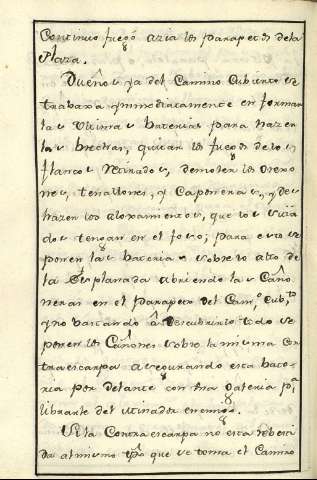 Continuo fuego azia los Parapetos de la
Plaza.
Dueños ya del Camino Cubierto se
trabaxa ynmediatamente en formar
las Ultimas baterias para hazer
las brechas, quitar los fuegos de los
flancos Retirados, demoler los Orexo
nes, tenallones, y Caponeras, y des
hazer los aloxamientos, que los Sitia
dos tengan en el foso; para esto se
ponen las baterias sobre lo alto de
la Esplanada abriendo las Caño
neras en el Parapeto del Cam.º Cub.to
y no bastando â Descubrirlo todo se
ponen los Cañones sobre la misma Con
traescarpa asegurando esta bate-
ria por delante con una Galeria p.ª
librarle del Minador enemigo.
Si la Contraescarpa no està rebesti
da al mismo tpô que se toma el Camino